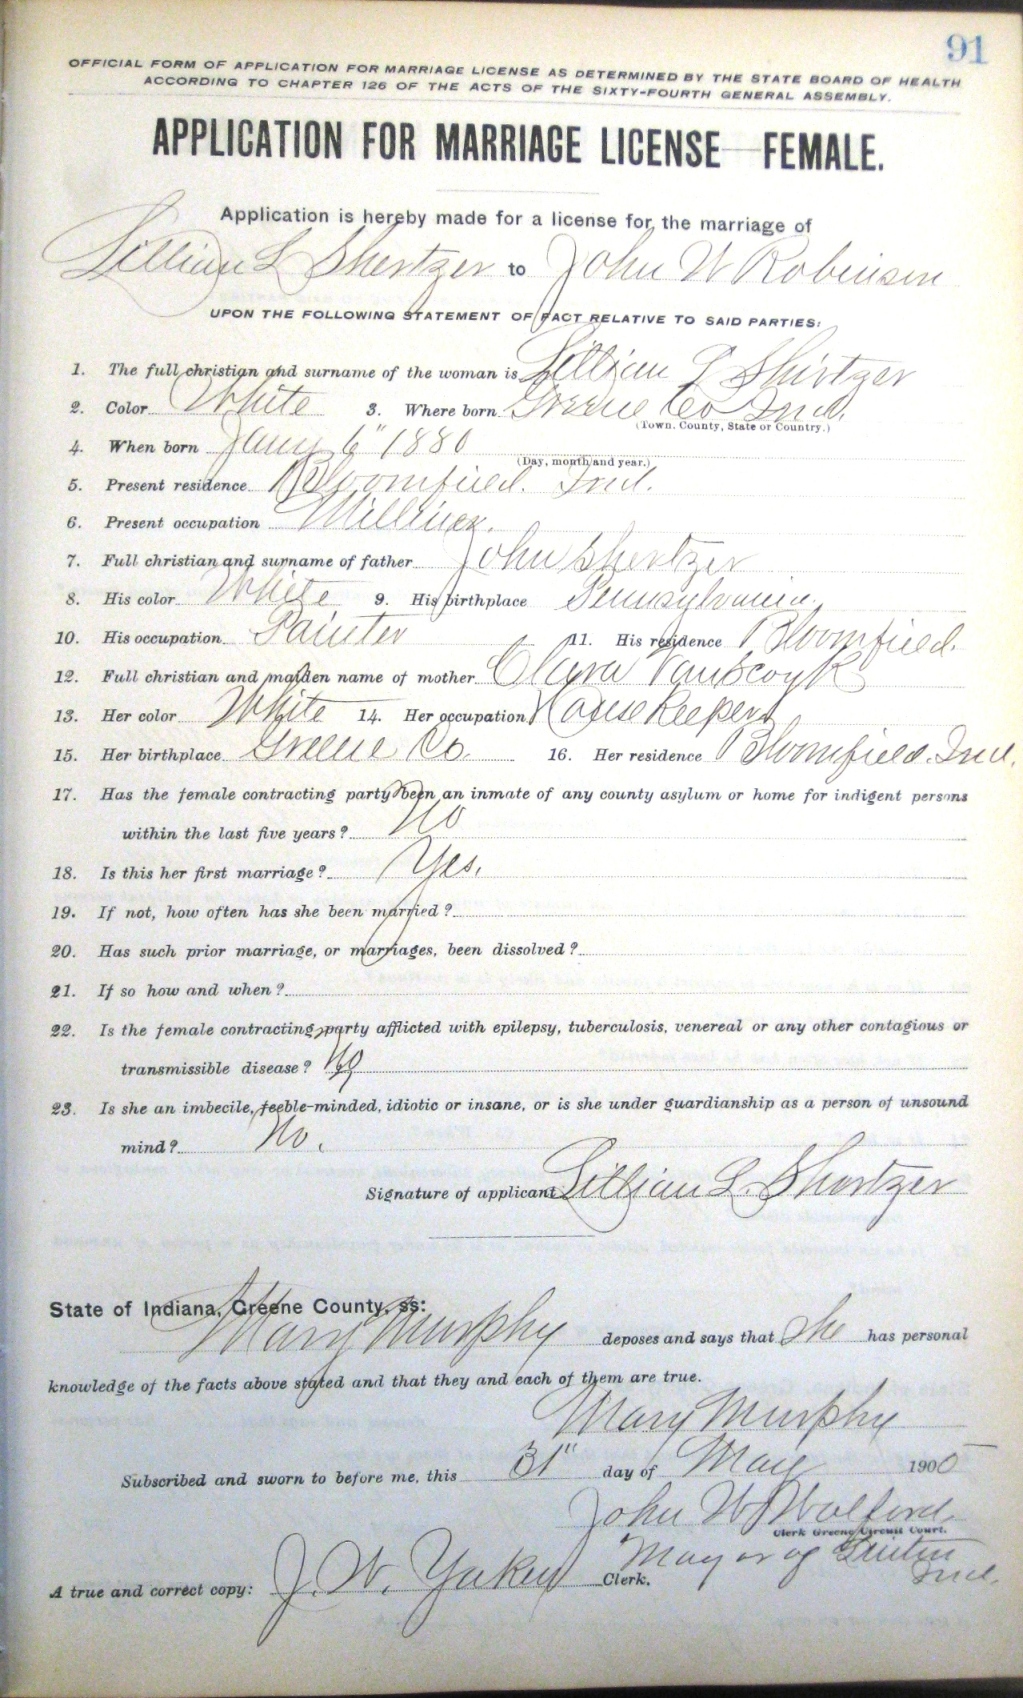 91
OFFICIAL FORM OF APPLICATION FOR MARRIAGE LICENSE AS DETERMINED BY THE STATE BOARD OF HEALTH
ACCORDING TO CHAPTER 126 OF THE ACTS OF THE SIXTY-FOURTH GENERAL ASSEMBLY.
APPLICATION FOR MARRIAGE LICENSE—FEMALE.
Application is hereby made for a license for the marriage of
Lillian L Shertzer to John W Robinson
UPON THE FOLLOWING STATEMENT OF FACT RELATIVE TO SAID PARTIES:
1. The full christian and surname of the woman is Lillian L Shirtzer
2. Color White 3. Where born Greene Co Ind.
(Town, County, State or Country.)
4. When born Jany 6" 1880
(Day, month and year.)
5. Present residence Bloomfield. Ind.
6. Present occupation Milliner.
7. Full christian and surname of father John Shertzer
8. His color White 9. His birthplace Pennsylvania.
10. His occupation Painter 11. His residence Bloomfield.
12. Full christian and maiden name of mother Clara Vanscoyk
13. Her color White 14. Her occupation House Keeper
15. Her birthplace Greene Co. 16. Her residence Bloomfield. Ind.
17. Has the female contracting party been an inmate of any county asylum or home for indigent persons
within the last five years? No
18. Is this her first marriage? Yes.
19. If not, how often has she been married?
20. Has such prior marriage, or marriages, been dissolved?
21. If so how and when?
22. Is the female contracting party afflicted with epilepsy, tuberculosis, venereal or any other contagious or
transmissible disease? No
23. Is she an imbecile, feeble-minded, idiotic or insane, or is she under guardianship as a person of unsound
mind? No.
Signature of applicant Lillian L. Shortzer
State of Indiana, Greene County, ss:
Mary Murphy deposes and says that She has personal
knowledge of the facts above stated and that they and each of them are true.
Mary Murphy
Subscribed and sworn to before me, this 31" day of May 1905
John W Wolford
Clerk Greene Circuit Court.
Mayor of Linton
Ind.
A true and correct copy: J. W. Yakey Clerk.